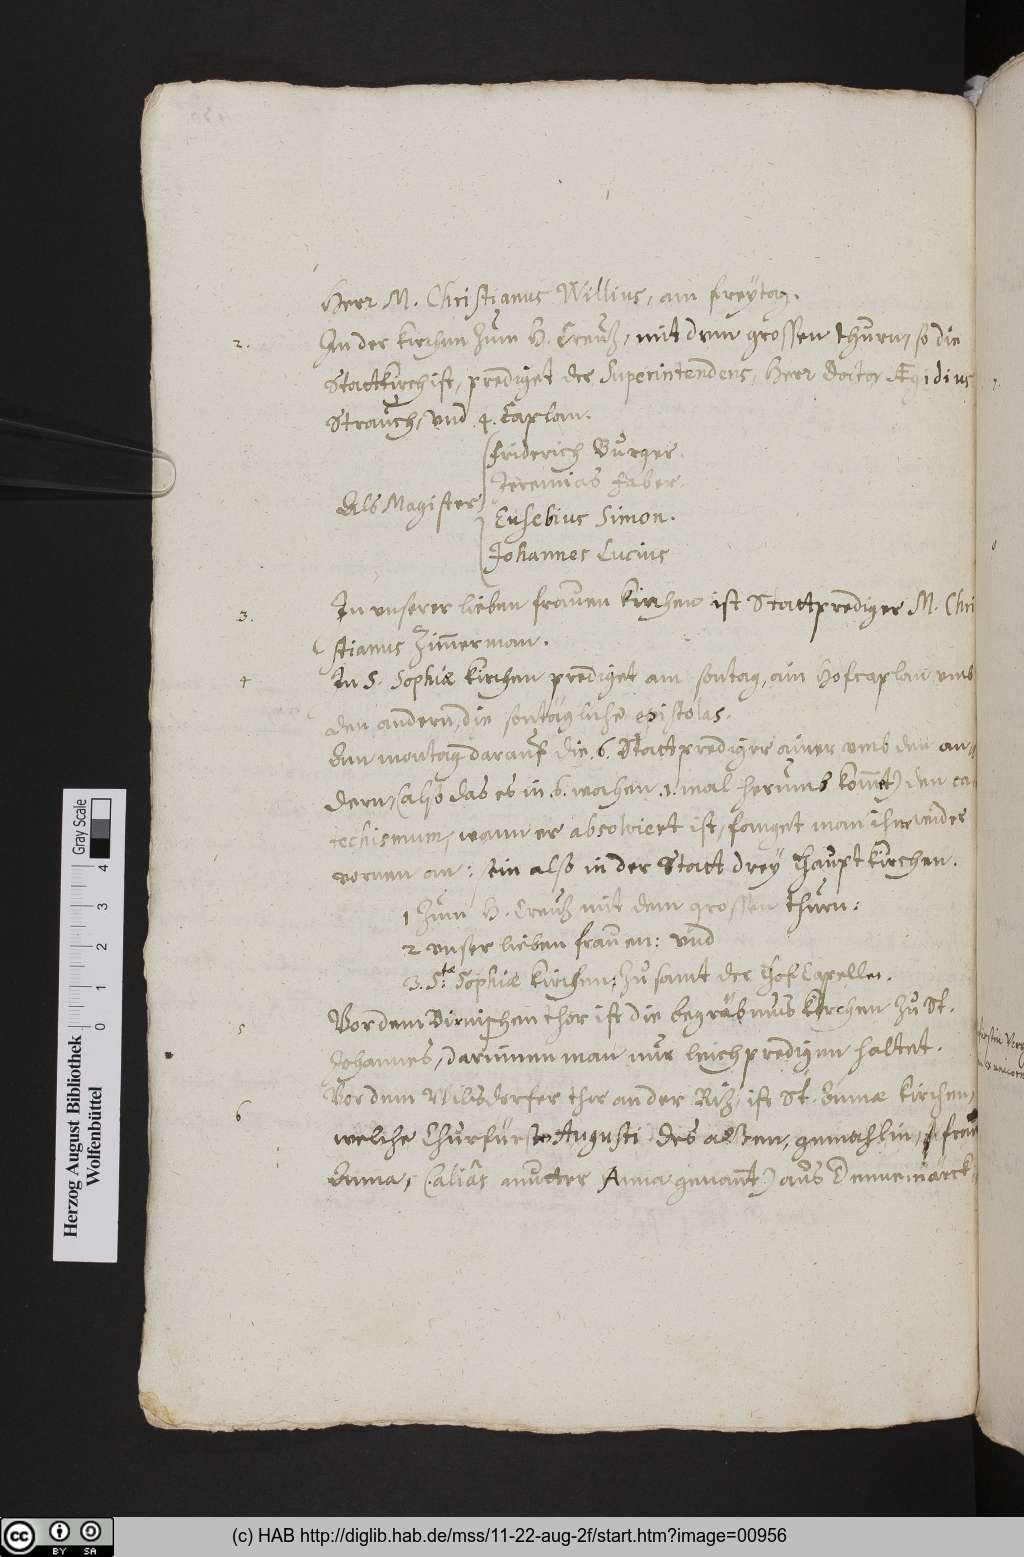 Herr M. Christianus Willius, am freÿtag.
2. In der Kirchen zum H. Creutz, mit dem grossen thurn, so die
Stattkirch ist, prediget der Superintendens, Herr Doctor Ægidius
Strauch, vnd 4. Caplan.
Friderich Burger.
Jeremias Faber.
Als Magister
Eusebius Simon.
Johannes Lucius
3. In vnserer lieben frauen kirchen ist Stattprediger M. Chri
stianus Zim̄erman.
4 In S. Sophiæ kirchen prediget am sontag, ain Hofcaplan vmb
den andern, die sontägliche epistolas.
Am montag darauf die .6. Stattprediger ainer vmb den an=
dern, (also das es in .6. wochen .1. mal herumb kom̄et) den ca
techismum, wann er absolviert ist, fanget man ihn wider
vornen an: sein also in der Statt dreÿ haupt kirchen.
1 Zum H. Creutz mit dem grossen thurn:
2 vnser lieben frauen: vnd
3. S.tæ Sophiæ kirchen: zu samt der Hof Capellen.
5 Vor dem Birnischen thor ist die begräbnus kirchen zu St.
Johannes, darinnen man nur leichpredigen haltet.
6 Vor dem Wilsdorfer thor an der Ritz, ist St. Annæ kirchen,
welche Churfürst Augusti des alten, gemahlin, frau
Anna, (aliâs mutter Anna genañt) aus Dennemarck
Herzog August Bibliothek
Wolfenbüttel
Gray Scale
0 1 2 3 4
(c) HAB http://diglib.hab.de/mss/11-22-aug-2f/start.htm?image=00956
cc BY SA